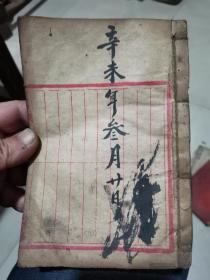 辛未年叁月廿日